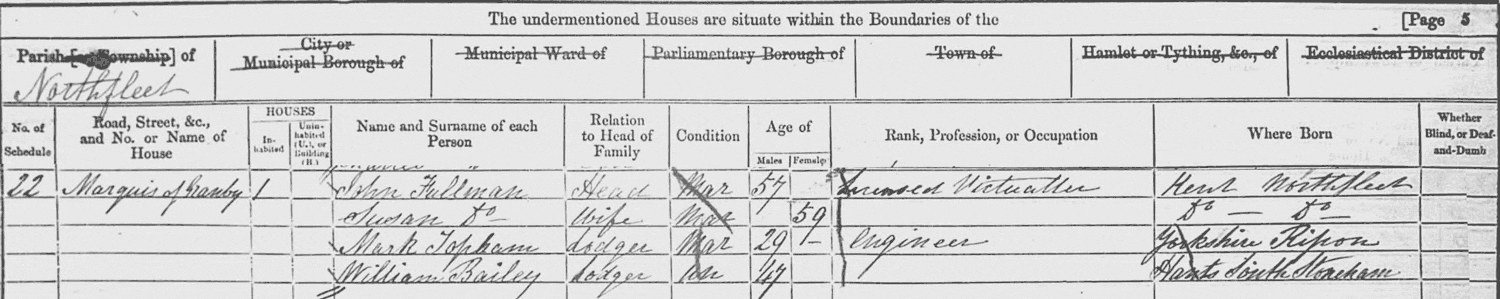 The undermentioned Houses are situate within the Boundaries of the [Page 5
Parish [or Township] of City or Municipal Borough of Municipal Ward of Parliamentary Borough of Town of Hamlet or Tything, &c., of Ecclesiastical District of
Northfleet
No. of Schedule Road, Street, &c., and No. or Name of House HOUSES In-habited Unin-habited (U.), or Building (B.) Name and Surname of each Person Relation to Head of Family Condition Age of Males Females Rank, Profession, or Occupation Where Born Whether Blind, or Deaf-and-Dumb
22 Marquis of Granby 1 John Fullman Head Mar 57 Licensed Victualler Kent Northfleet
Susan Do Wife Mar 59 Do — Do
Mark Topham Lodger Mar 29 – Engineer Yorkshire Ripon
William Bailey Lodger Un 47 Hants South Stoneham